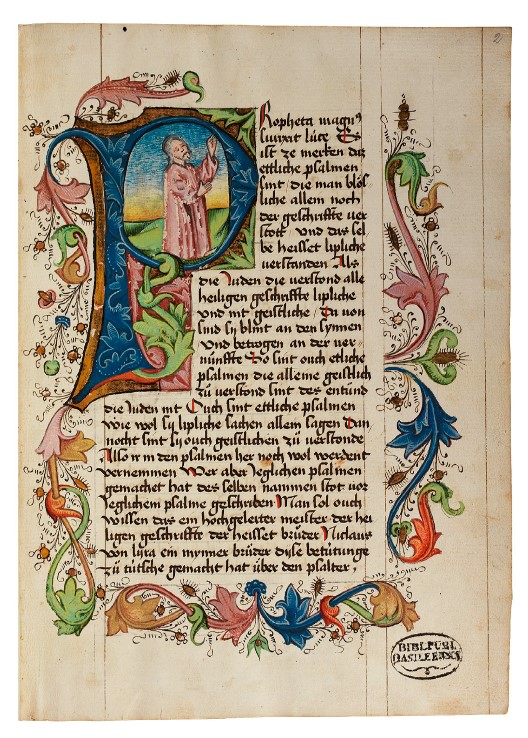 2
Propheta magnus
surrexit luce Es
ist ze merken daz
ettliche psalmen
sint die man blös
liche allein noch
der geschrifft ver
stott und das sel
be heisset lipliche
verstanden Als
die Juden die verstond alle
heiligen geschriffte lipliche
und nit geistliche Da von
sind sij blint an den synnen
und betrogen an der ver
nunffte Es sint ouch etliche
psalmen die alleine geistlich
zů verstond sint des entůnd
die Juden nit Ouch sint ettliche psalmen
wie wol sij lipliche sachen allein sagen Dan
nocht sint sij ouch geistlichen zů verstonde
Also ir in den psalmen her noch wol werdent
vernemmen Wer aber Jeglichen psalmen
gemachet hat des selben nammen stot vor
Jeglichem psalme geschriben Man sol ouch
wissen das ein hochgelerter meister der hei
ligen geschriffte der heisset brůder Niclaus
von lyra ein mynner brůder dise betůtunge
zů tůtsche gemacht hat über den psalter.
BIBL PUBL
BASILEENSIS